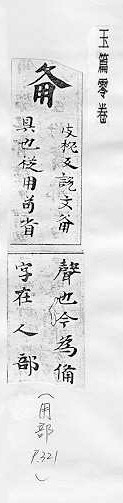 玉篇零卷
𤰈
皮祕反說文𤰈
具也從用苟省
聲也今為俻
字在人部
(用部
P.321
)